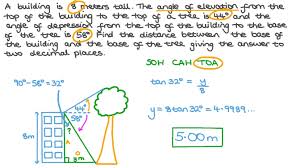 A building is 8 meters tall. The angle of elevation from the
top of the building to the top of a tree is 44° and the
angle of depression from the top of the building to the base
of the tree is 58° Find the distance between the base of
the building and the base of the tree giving the answer to
two decimal places.
SOH CAH TOA
90°-58°=32°
tan 32° = y/8
44°
58°
y = 8 tan 32° = 4.9989...
8m
?
5.00m